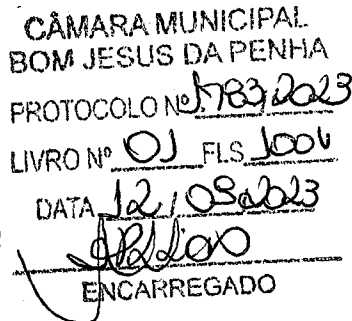 CÂMARA MUNICIPAL
BOM JESUS DA PENHA
PROTOCOLO Nº 1.783/2023
LIVRO Nº 01 FLS 100v
DATA 12/09/2023
ENCARREGADO